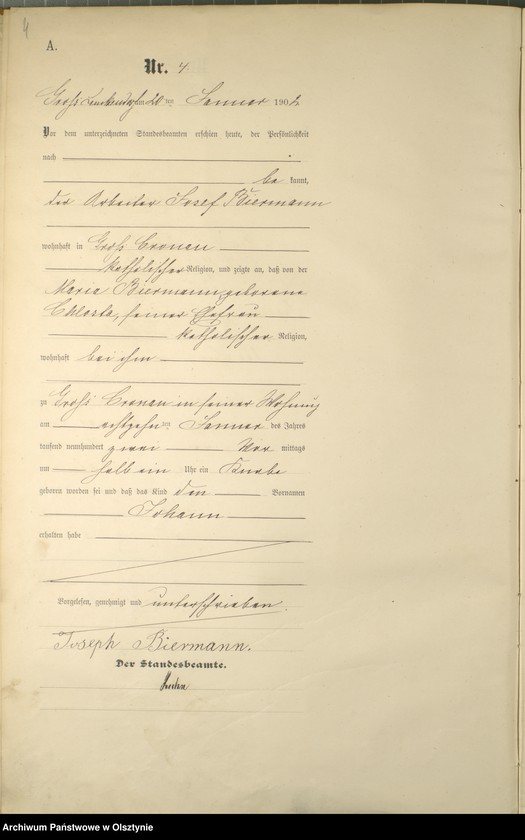 4
A.
Nr. 4.
Groß am 20 ten Januar 1902
Vor dem unterzeichneten Standesbeamten erschien heute, der Persönlichkeit
nach
be kannt,
der Arbeiter Josef Biermann
wohnhaft in Groß Cronau
katholischer Religion, und zeigte an, daß von der
Maria Biermann geborene
Chlosta, seiner Ehefrau
katholischer Religion,
wohnhaft bei ihm
zu Groß Cronau in seiner Wohnung
am achtzehn ten Januar des Jahres
tausend neunhundert zwei Vor mittags
um halb ein Uhr ein Knabe
geboren worden sei und daß das Kind den Vornamen
Johann
erhalten habe
Vorgelesen, genehmigt und unterschrieben.
Joseph Biermann.
Der Standesbeamte.
Archiwum Państwowe w Olsztynie